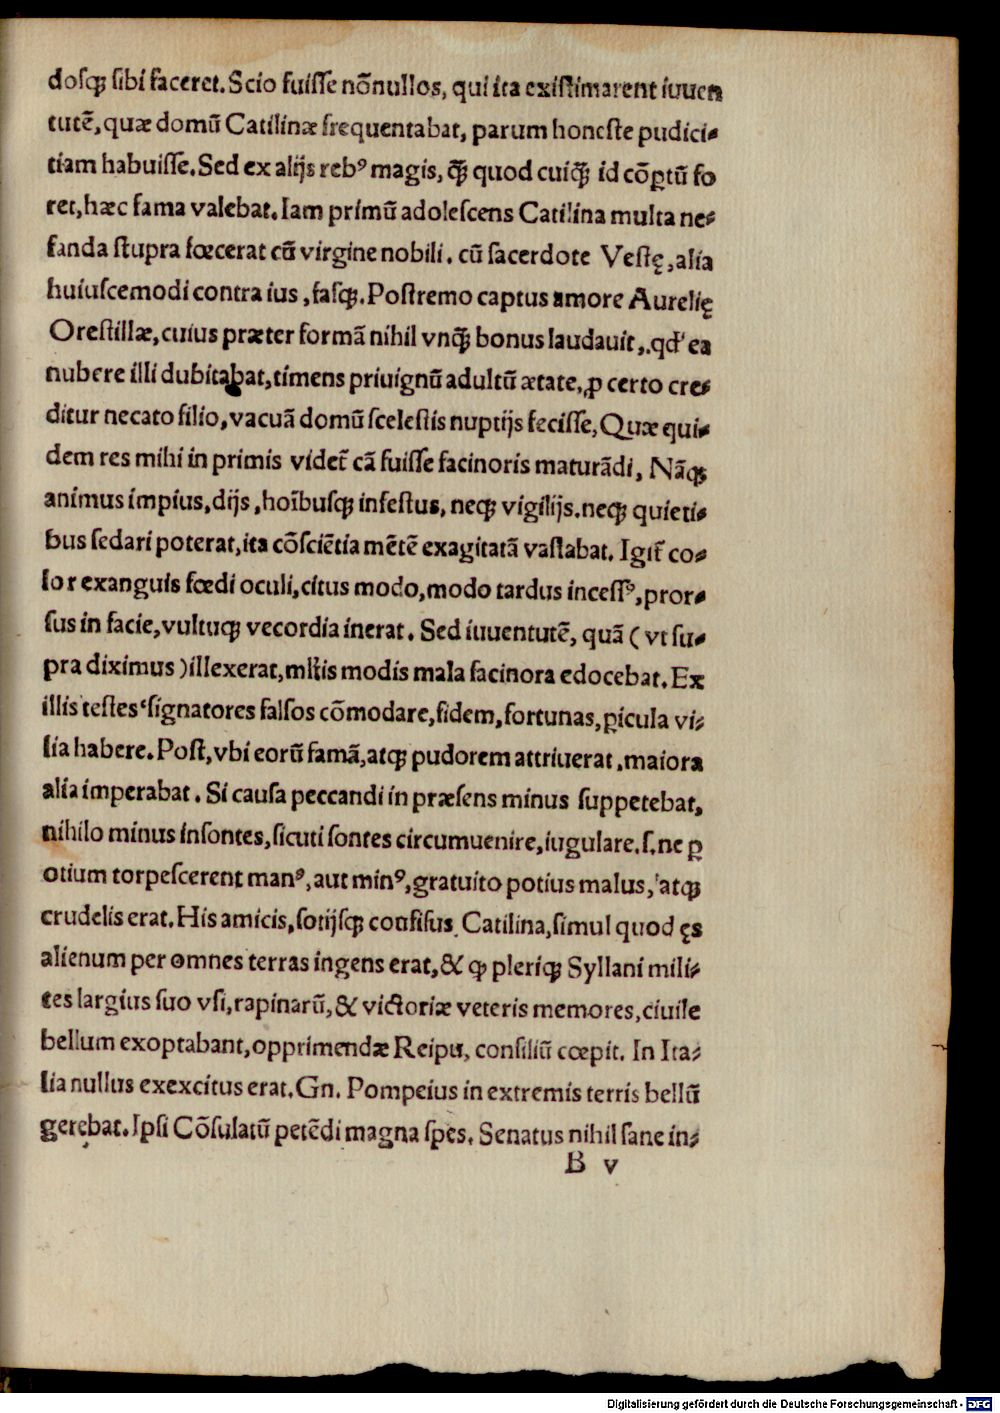 dosqꝫ sibi faceret. Scio fuisse nōnullos, qui ita existimarent iuuen
tutē, quæ domū Catilinæ frequentabat, parum honeste pudici-
tiam habuisse. Sed ex alijs rebꝰ magis, qꝫ̄ quod cuiqꝫ̄ id cōꝑtū fo
ret, hæc fama valebat. Iam primū adolescens Catilina multa ne-
fanda stupra fœcerat cū virgine nobili. cū sacerdote Vestę, alia
huiuscemodi contra ius, fasqꝫ. Postremo captus amore Aurelię
Orestillæ, cuius præter formā nihil vnqꝫ̄ bonus laudauit, .qđ ea
nubere illi dubitabat, timens priuignū adultū ætate, ꝓ certo cre-
ditur necato filio, vacuā domū scelestis nuptijs fecisse, Quæ qui-
dem res mihi in primis videt̄ cā fuisse facinoris maturādi, Nāqꝫ
animus impius, dijs, hoībusqꝫ infestus, neqꝫ vigilijs. neqꝫ quieti-
bus sedari poterat, ita cōsciētia mētē exagitatā vastabat. Igit̄ co-
lor exanguis fœdi oculi, citus modo, modo tardus incessꝰ, pror-
sus in facie, vultuqꝫ vecordia inerat. Sed iuuentutē, quā ( vt su-
pra diximus ) illexerat, ml̄tis modis mala facinora edocebat. Ex
illis testes signatores falsos cōmodare, fidem, fortunas, ꝑicula vi-
lia habere. Post, vbi eorū famā, atqꝫ pudorem attriuerat, maiora
alia imperabat. Si causa peccandi in præsens minus suppetebat,
nihilo minus insontes, sicuti sontes circumuenire, iugulare. s. ne ꝑ
otium torpescerent manꝰ, aut minꝰ, gratuito potius malus, atqꝫ
crudelis erat. His amicis, sotijsqꝫ confisus Catilina, simul quod ęs
alienum per omnes terras ingens erat, & ꝙ pleriqꝫ Syllani mili-
tes largius suo vsi, rapinarū, & victoriæ veteris memores, ciuile
bellum exoptabant, opprimendæ Reipu, consiliū cœpit. In Ita-
lia nullus exexcitus erat. Gn. Pompeius in extremis terris bellū
gerębat. Ipsi Cōsulatū petēdi magna spes. Senatus nihil sane in-
B v
Digitalisierung gefördert durch die Deutsche Forschungsgemeinschaft - DFG